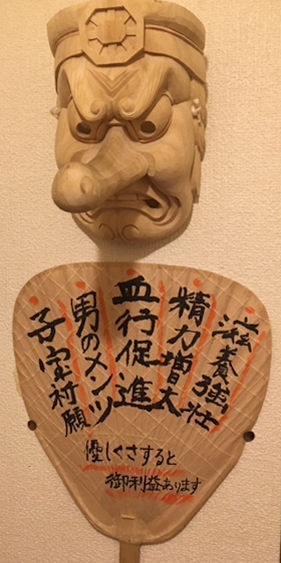 滋養強壮
精力増大
血行促進
男のメンツ
子宝祈願
優しくさすると
御利益あります